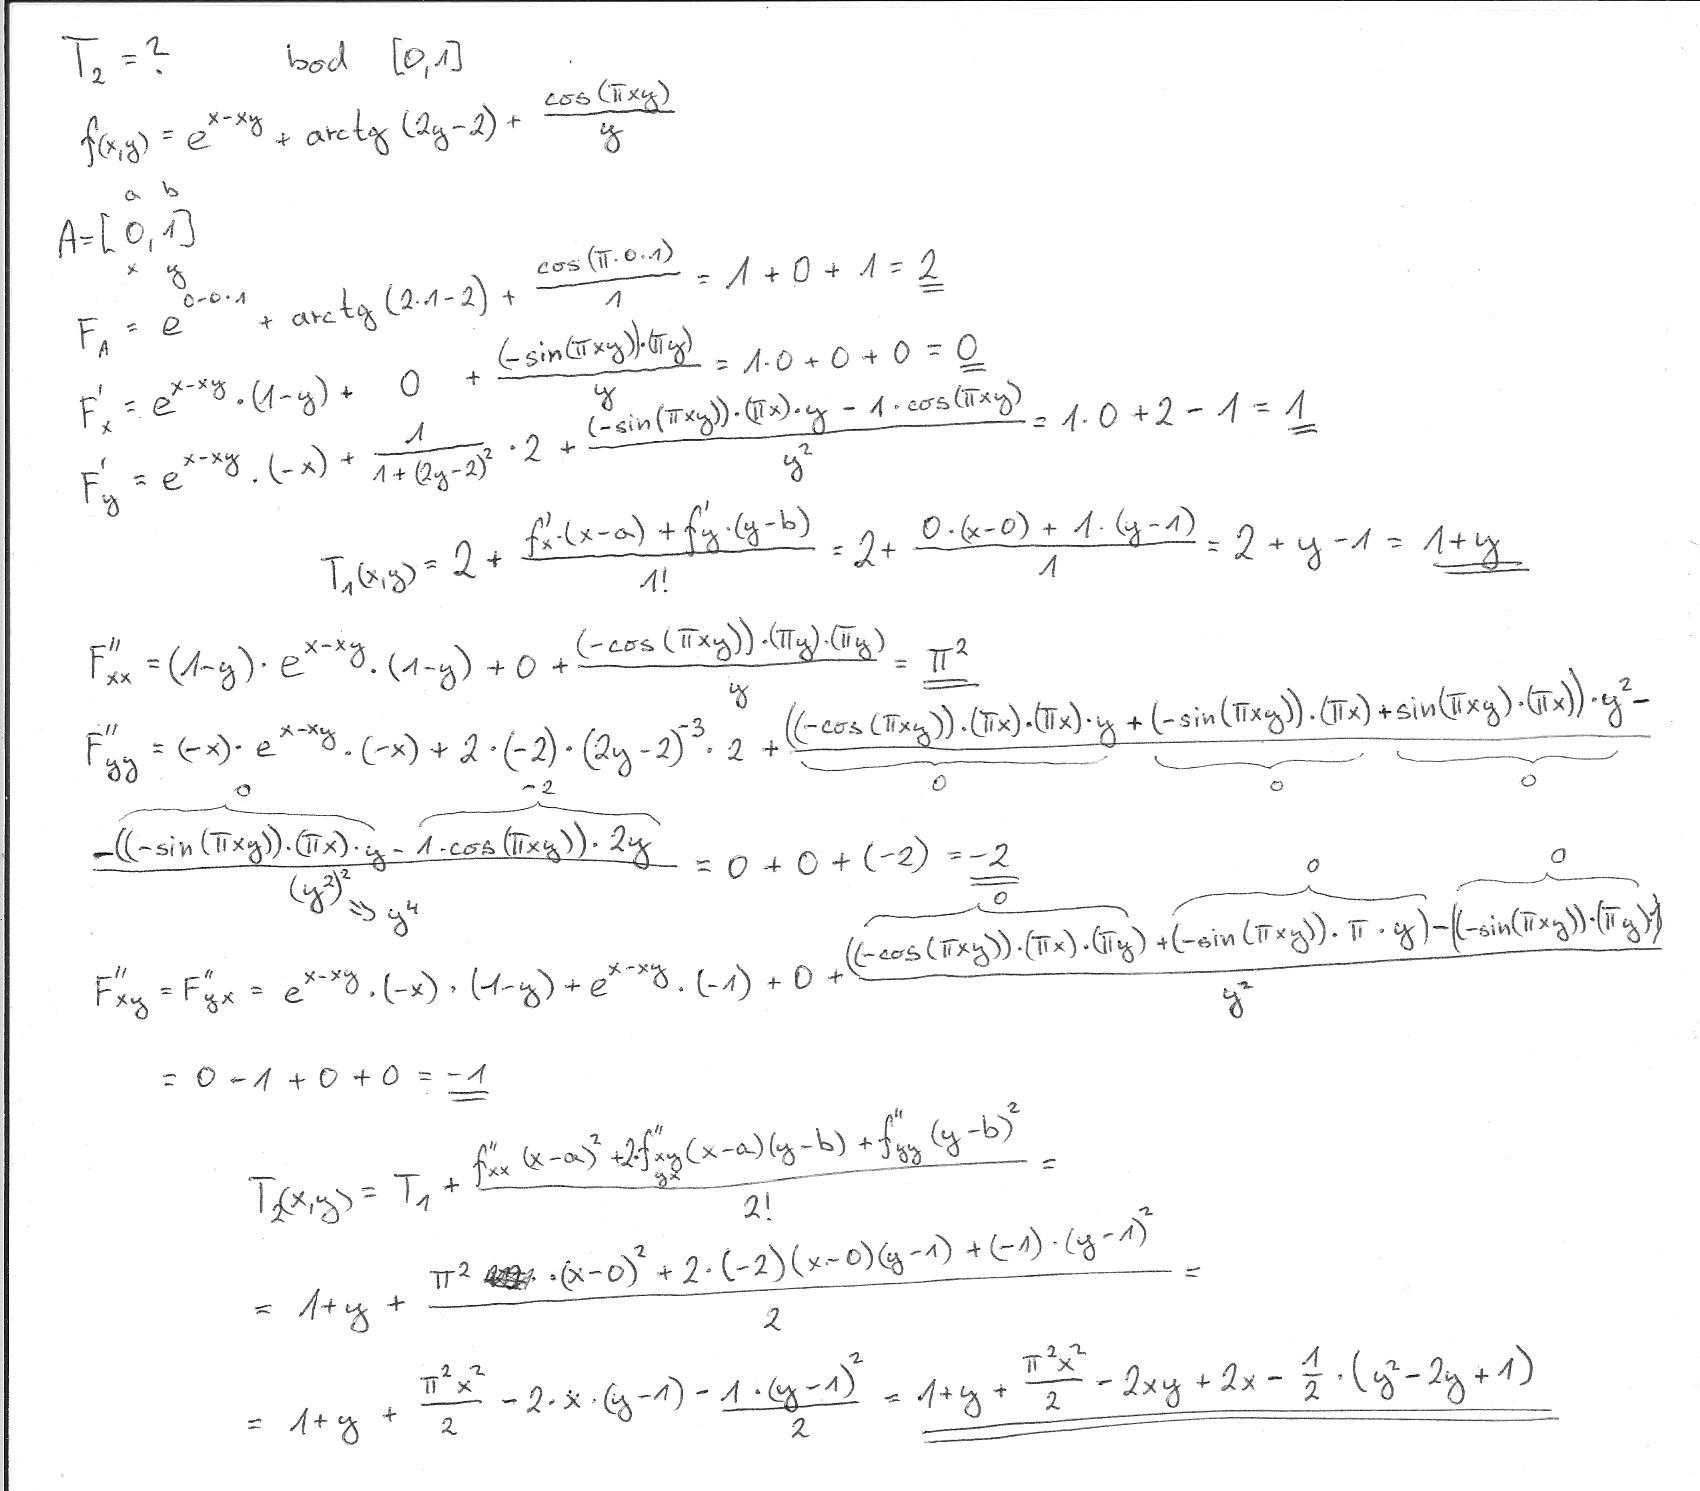 T₂ = ? bod [0,1]
f(x,y) = e^(x-xy) + arctg (2y-2) + cos(πxy)/y
a b
A = [0, 1]
x y
F_A = e^(0-0·1) + arctg (2·1-2) + cos(π·0·1)/1 = 1 + 0 + 1 = 2
F'_x = e^(x-xy) · (1-y) + 0 + (-sin(πxy))·(πy)/y = 1·0 + 0 + 0 = 0
F'_y = e^(x-xy) · (-x) + 1/(1+(2y-2)²) · 2 + ((-sin(πxy))·(πx)·y - 1·cos(πxy))/y² = 1·0 + 2 - 1 = 1
T₁(x,y) = 2 + (f'_x·(x-a) + f'_y·(y-b))/1! = 2 + (0·(x-0) + 1·(y-1))/1 = 2 + y - 1 = 1+y
F''_xx = (1-y) · e^(x-xy) · (1-y) + 0 + (-cos(πxy))·(πy)·(πy)/y = π²
F''_yy = (-x) · e^(x-xy) · (-x) + 2 · (-2) · (2y-2)^-3 · 2 + ((-cos(πxy))·(πx)·(πx)·y + (-sin(πxy))·(πx) + sin(πxy)·(πx))·y² -
0 0 0
0 -2
-((-sin(πxy))·(πx)·y - 1·cos(πxy))·2y/(y²)² => y⁴ = 0 + 0 + (-2) = -2
0 0 0
F''_xy = F''_yx = e^(x-xy) · (-x) · (1-y) + e^(x-xy) · (-1) + 0 + ((-cos(πxy))·(πx)·(πy) + (-sin(πxy))·π·y) - ((-sin(πxy))·(πy)·1)/y²
= 0 - 1 + 0 + 0 = -1
T₂(x,y) = T₁ + (f''_xx (x-a)² + 2·f''_xy yx (x-a)(y-b) + f''_yy (y-b)²)/2! =
= 1+y + (π² · (x-0)² + 2·(-2)(x-0)(y-1) + (-1)·(y-1)²)/2 =
= 1+y + π²x²/2 - 2·x·(y-1) - 1·(y-1)²/2 = 1+y + π²x²/2 - 2xy + 2x - 1/2 · (y²-2y+1)